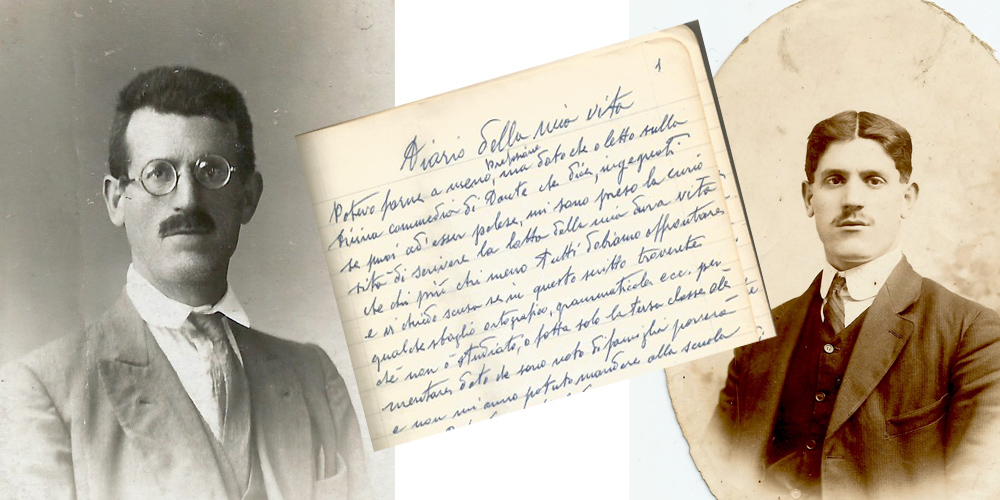 1
Diario della mia vita
Prefazione
Potevo farne a meno, ma dato che o letto sulla
divina comedia di Dante che dice, ingegnati
se puoi ad'esser palese, mi sono preso la curio
sità di scrivere la lotta della mia dura vita
che chi più chi meno tutti dobiamo affrontare
e vi chiedo scusa se in questo scritto troverete
qualche sbaglio ortografia, grammaticale ecc. per
chè non ò studiato, o fatto solo la terza classe ele
mentare dato che sono nato di famiglia povera
e non mi anno potuto mandare alla scuola